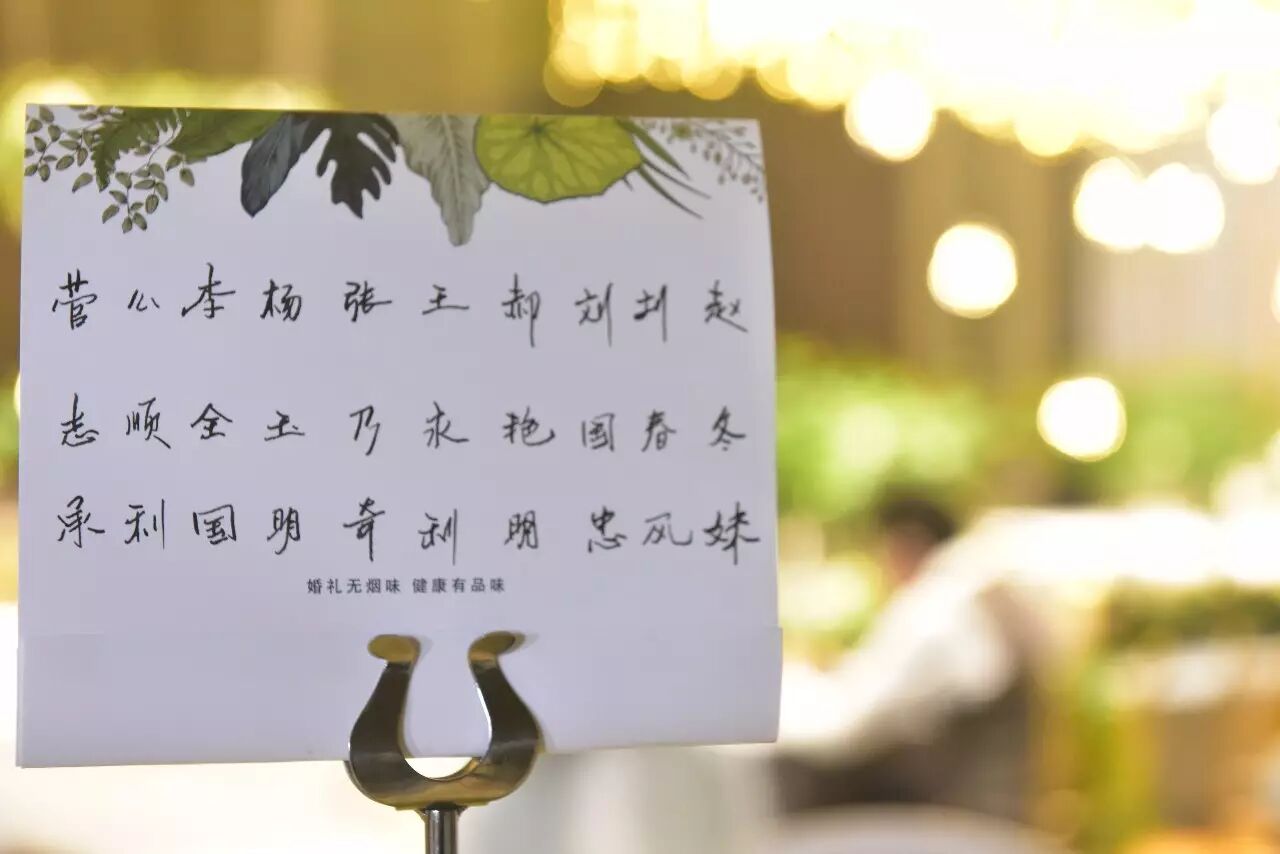 菅志承
公顺利
李全国
杨玉明
张乃奇
王永利
郝艳明
刘国忠
刘春风
赵冬妹
婚礼无烟味 健康有品味